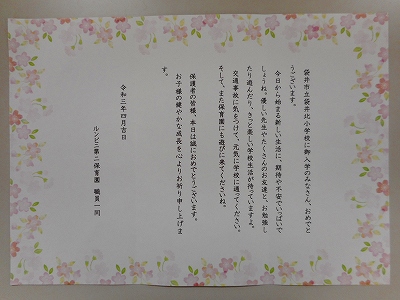 袋井市立袋井北小学校に御入学のみなさん、おめでと
うございます。
今日から始まる新しい生活に、期待や不安でいっぱいで
しょうね。優しい先生やたくさんのお友達と、お勉強し
たり遊んだり、きっと楽しい学校生活が待っていますよ。
交通事故に気をつけて、元気に学校に通ってください。
そして、また保育園にも遊びに来てくださいね。
保護者の皆様、本日は誠におめでとうございます。
お子様の健やかな成長を心よりお祈り申し上げま
す。
令和三年四月吉日
ルンビニ第二保育園 職員一同